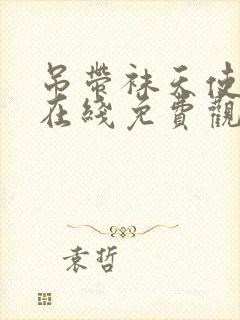 吊帶袜天使
在綫免費觀
袁哲